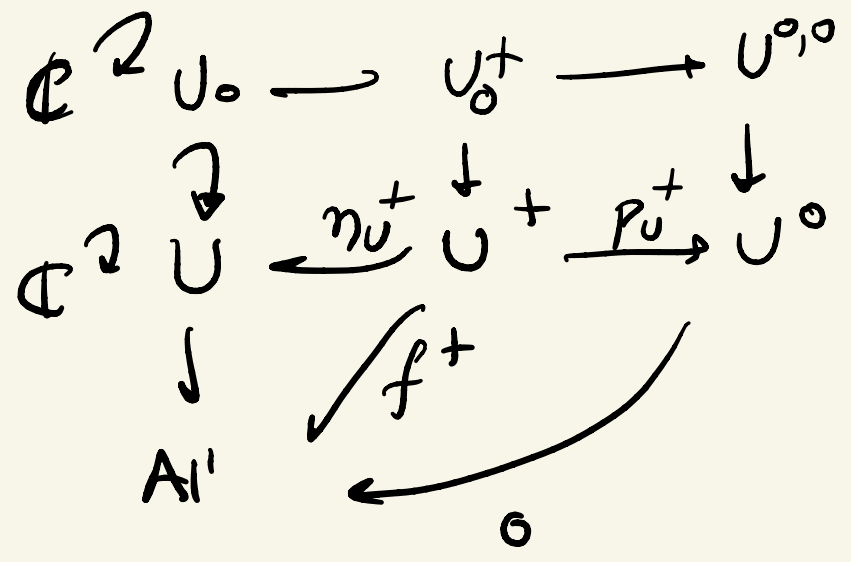 ℂ U₀ U₀⁺ U⁰,⁰
ℂ U η_U⁺ U⁺ p_U⁺ U⁰
f⁺
𝔸¹
0